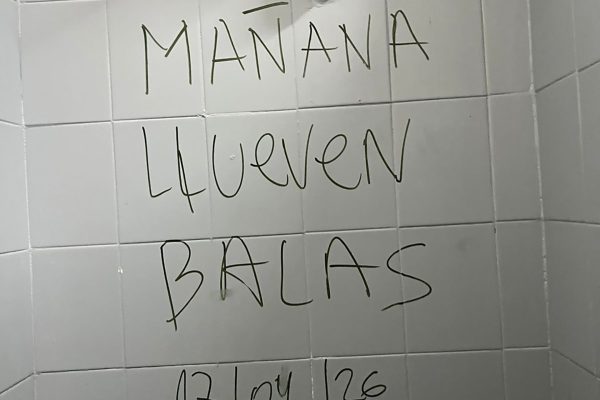 MAÑANA
LLUEVEN
BALAS
17/04/26